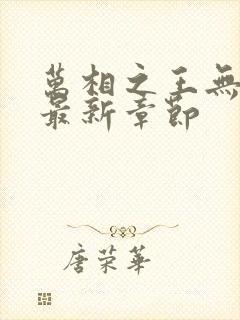 萬相之王無
最新章節
唐荣華